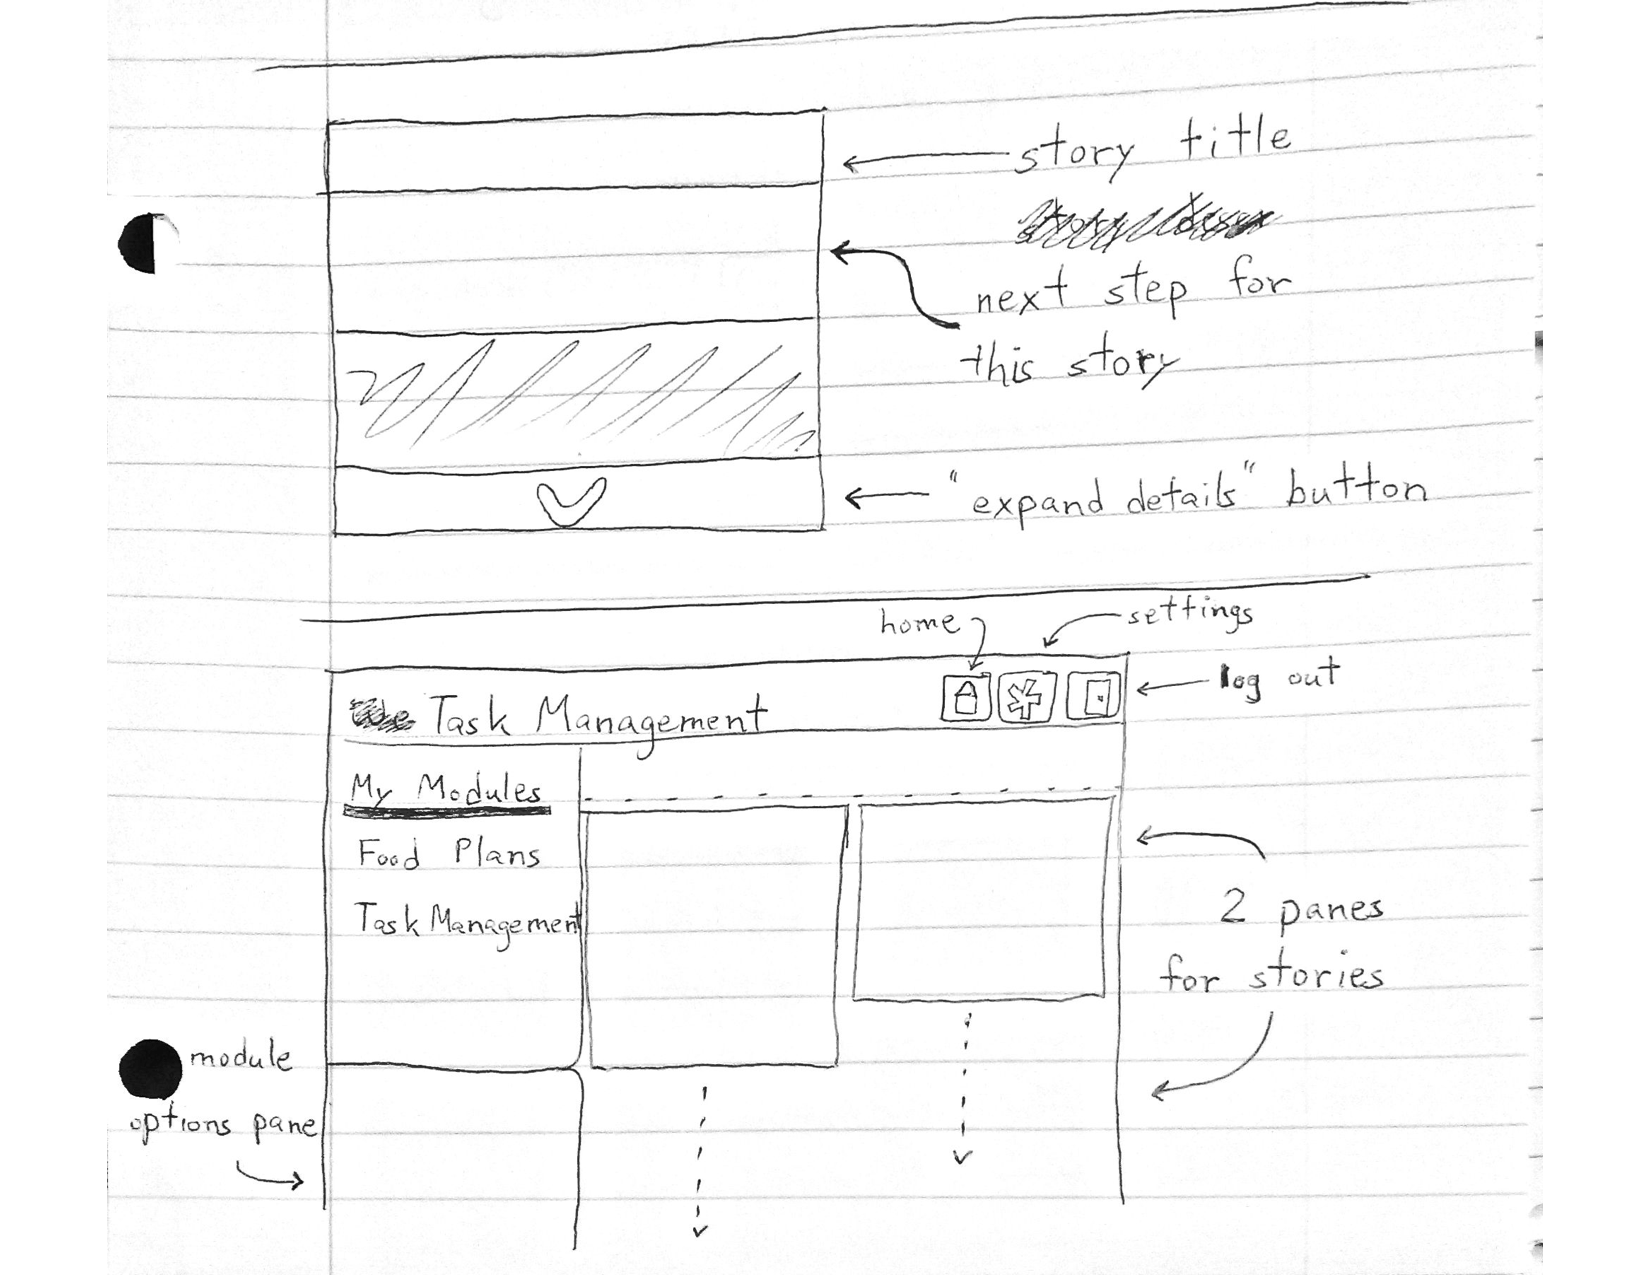 story title
next step for
this story
"expand details" button
home
settings
log out
Task Management
My Modules
Food Plans
Task Management
2 panes
for stories
module
options pane